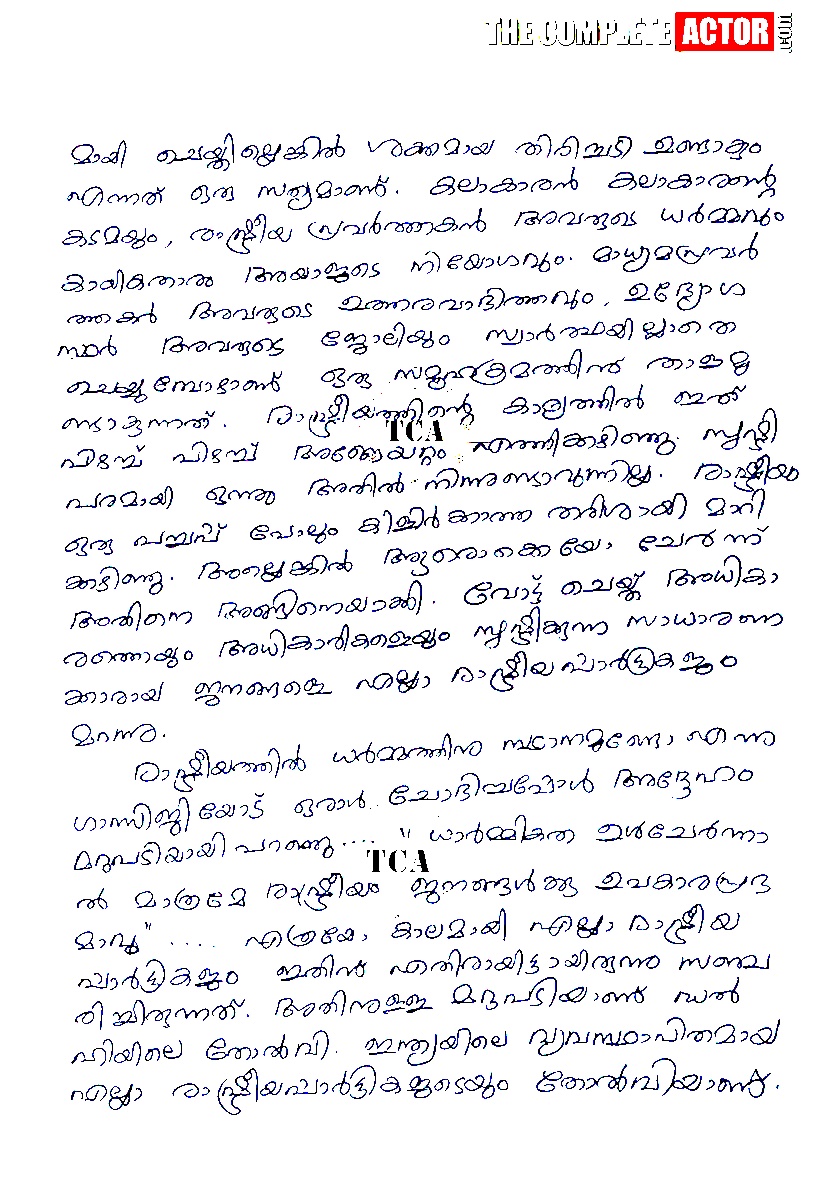 THE COMPLETE ACTOR .com
മായി ചെയ്തില്ലെങ്കിൽ ശക്തമായ തിരിച്ചടി ഉണ്ടാകും
എന്നത് ഒരു സത്യമാണ്. കലാകാരൻ കലാകാരന്റെ
കടമയും, രാഷ്ട്രീയ പ്രവർത്തകൻ അവരുടെ ധർമ്മവും
കായികതാരം അയാളുടെ നിയോഗവും. മാധ്യമപ്രവർ
ത്തകർ അവരുടെ ഉത്തരവാദിത്തവും, ഉദ്യോഗ
സ്ഥർ അവരുടെ ജോലിയും സ്വാർത്ഥയില്ലാതെ
ചെയ്യുമ്പോഴാണ് ഒരു സമൂഹക്രമത്തിന് താളമു
ണ്ടാകുന്നത്. രാഷ്ട്രീയത്തിന്റെ കാര്യത്തിൽ ഇത്
പിഴച്ച് പിഴച്ച് അങ്ങേയറ്റം എത്തിക്കഴിഞ്ഞു. സൃഷ്ടി
TCA
പരമായി ഒന്നും അതിൽ നിന്നുണ്ടാവുന്നില്ല. രാഷ്ട്രീയം
ഒരു പച്ചപ്പ് പോലും കിളിർക്കാത്ത തരിശായി മാറി
ക്കഴിഞ്ഞു. അല്ലെങ്കിൽ ആരൊക്കെയോ ചേർന്ന്
അതിനെ അങ്ങിനെയാക്കി. വോട്ട് ചെയ്ത് അധികാ
രത്തെയും അധികാരികളെയും സൃഷ്ടിക്കുന്ന സാധാരണ
ക്കാരായ ജനങ്ങളെ എല്ലാ രാഷ്ട്രീയപാർട്ടികളും
മറന്നു.
രാഷ്ട്രീയത്തിൽ ധർമ്മത്തിനു സ്ഥാനമുണ്ടോ എന്നു
ഗാന്ധിജിയോട് ഒരാൾ ചോദിച്ചപ്പോൾ അദ്ദേഹം
മറുപടിയായി പറഞ്ഞു.... "ധാർമ്മികത ഉൾചേർന്നാ
TCA
ൽ മാത്രമേ രാഷ്ട്രീയം ജനങ്ങൾക്കു ഉപകാരപ്രദ
മാവൂ" .... എത്രയോ കാലമായി എല്ലാ രാഷ്ട്രീയ
പാർട്ടികളും ഇതിന് എതിരായിട്ടായിരുന്നു സഞ്ച
രിച്ചിരുന്നത്. അതിനുള്ള മറുപടിയാണ് ഡൽ
ഹിയിലെ തോൽവി. ഇന്ത്യയിലെ വ്യവസ്ഥാപിതമായ
എല്ലാ രാഷ്ട്രീയപാർട്ടികളുടെയും തോൽവിയാണ്.